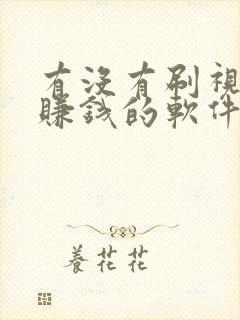 有没有刷視
賺錢的軟件
養花花